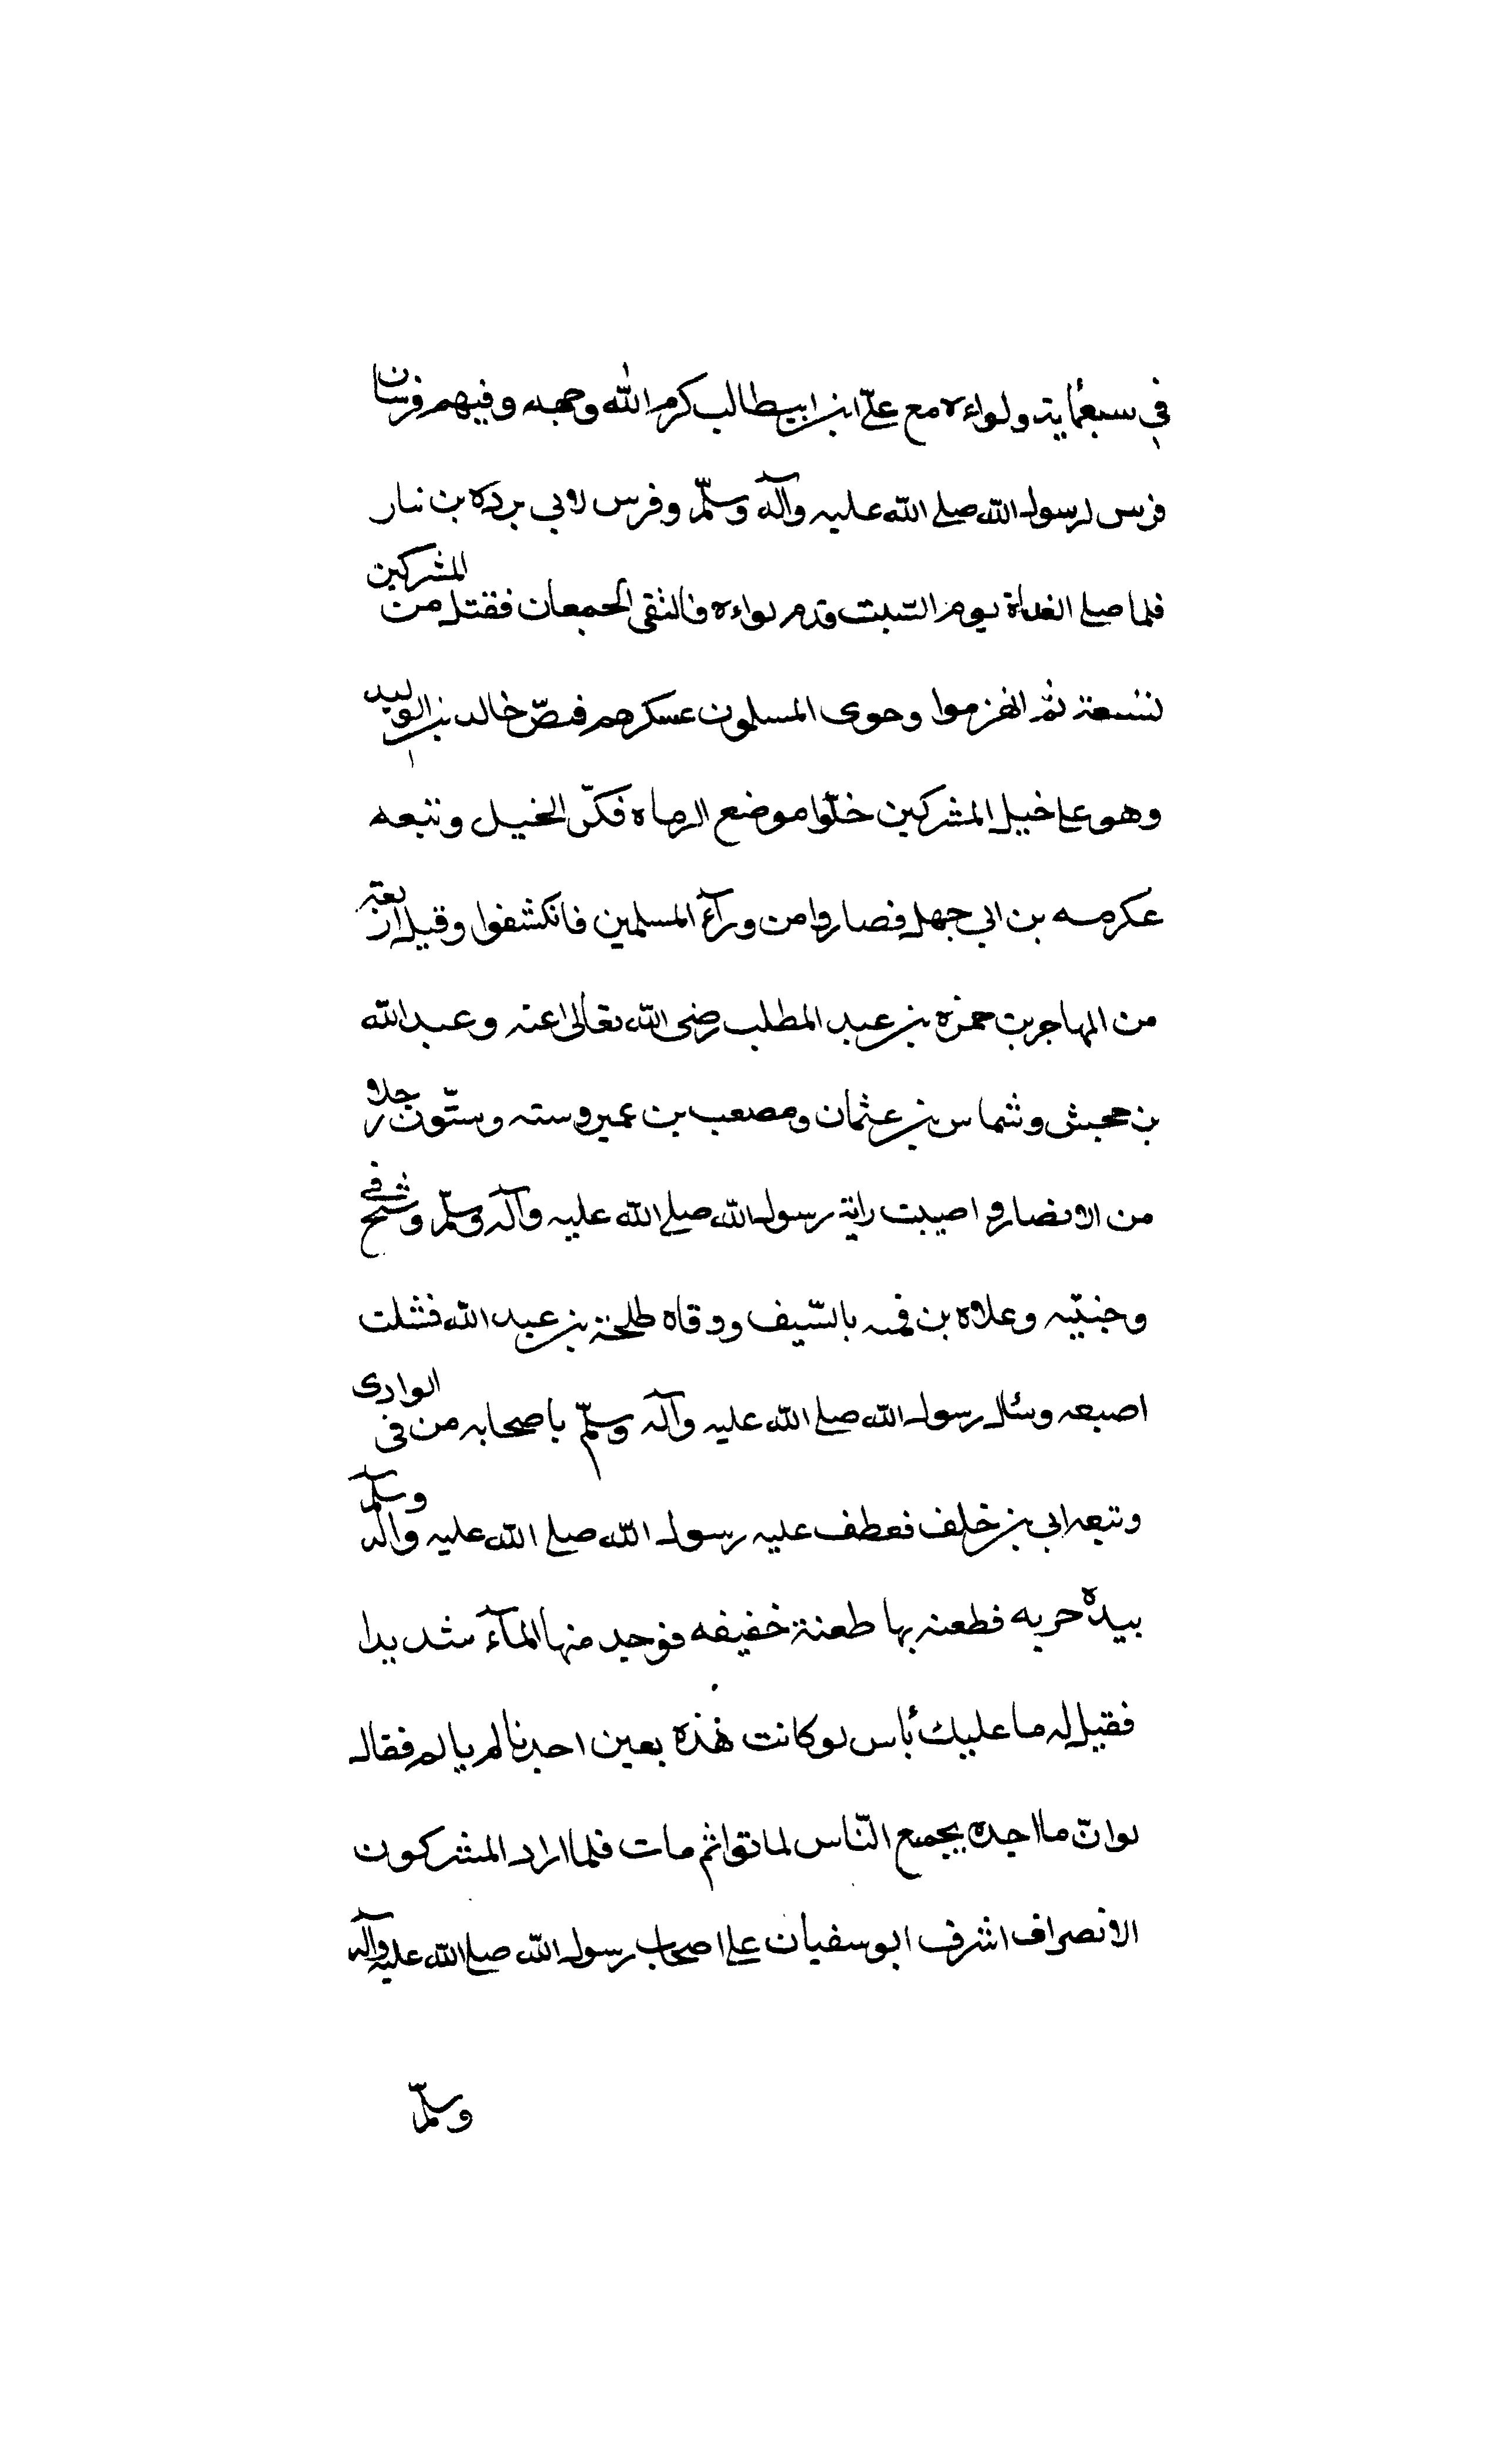 في سبعمأية ولواءه مع عليّ ابن ابيطالب كرم الله وجهه وفيهم فرسان
فرس لرسول الله صلى الله عليه وآله وسلّم وفرس لابي برده بن نيار
فلما صلى الغداة يوم السّبت قدم لواءه فالتقى الجمعان فقتل من المشركين
تسعة ثم انهزموا وحوى المسلمون عسكرهم فبصّر خالد بن الوليد
وهو على خيل المشركين خلّوا موضع الرماه فكرّ الخيل وتبعه
عكرمه بن ابي جهل فصاروا من ورآء المسلمين فانكشفوا وقيل اربعة
من المهاجرين حمزه بن عبد المطلب رضى الله تعالى عنه وعبد الله
بن جحش وشماس بن عثمان ومصعب بن عمير وسته وستّون رجلا
من الانصار و اصيبت راية رسول الله صلى الله عليه وآله وسلّم وشج في
وجنتيه وعلاه بن قمه بالسّيف ووقاه طلحة بن عبد الله فشلت
اصبعه وسأل رسول الله صلى الله عليه وآله وسلّم باصحابه من في الوادى
وتبعه ابي بن خلف فعطف عليه رسول الله صلى الله عليه وآله وسلّم
بيده حربه فطعنه بها طعنة خفيفه فوجد منها المآء شديدا
فقيل له ما عليك بأس لو كانت هذه بعين احدنا لم يالم فقال
لو انّ ما اجده بجمع النّاس لماتوا ثم مات فلما اراد المشركون
الانصراف اشرف ابو سفيان على اصحاب رسول الله صلى الله عليه وآله
وسلّم